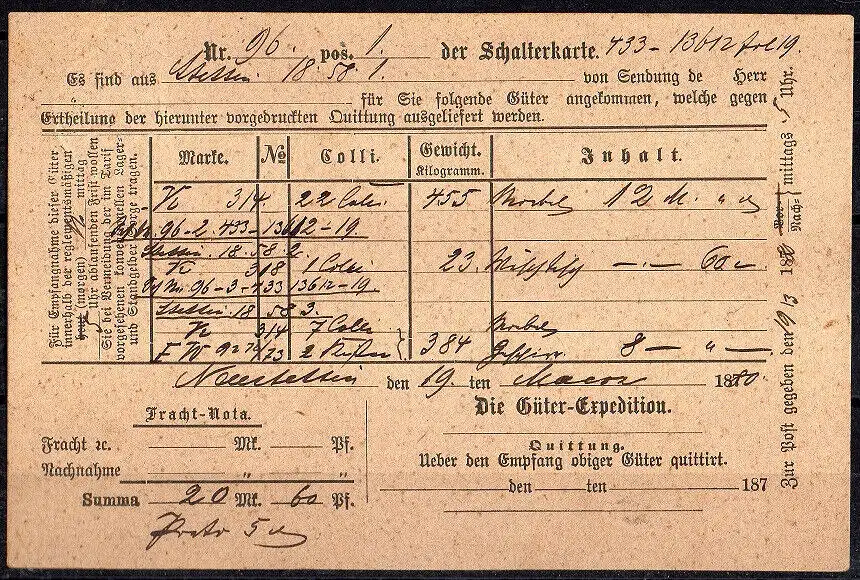 Nr. 96. pos. 1. der Schalterkarte. 433 - 13612 19.
Es sind aus Stettin. 18. 58. 1. von Sendung de Herr
für Sie folgende Güter angekommen, welche gegen
Ertheilung der hierunter vorgedruckten Quittung ausgeliefert werden.
Für Empfangnahme dieser Güter
innerhalb der reglementsmäßigen
heut (morgen) mittag
Uhr ablaufenden Frist wollen
Sie bei Vermeidung der im Tarif
vorgesehenen konventionellen Lager-
und Standgelder Sorge tragen.
Marke. No Colli. Gewicht. Kilogramm. Inhalt.
314 22 Colli 455 Moebel 12 M.
96-2. 433-13612-19.
Stettin. 18. 58. 2.
318 1 Colli 23. 60
96-3-433 13612-19.
Stettin. 18 58 3.
314 7 Colli Moebel
F W 2 384 8
Neustettin den 19. ten Maerz 1880.
Fracht-Nota.
Fracht ꝛc. Mk. Pf.
Nachnahme „ „
Summa 20 Mk. 60 Pf.
Porto 5
Die Güter-Expedition.
Quittung.
Ueber den Empfang obiger Güter quittirt.
den ten 187
Zur Post gegeben den 19/3 1880 Vor- Nach- mittags 5 Uhr.